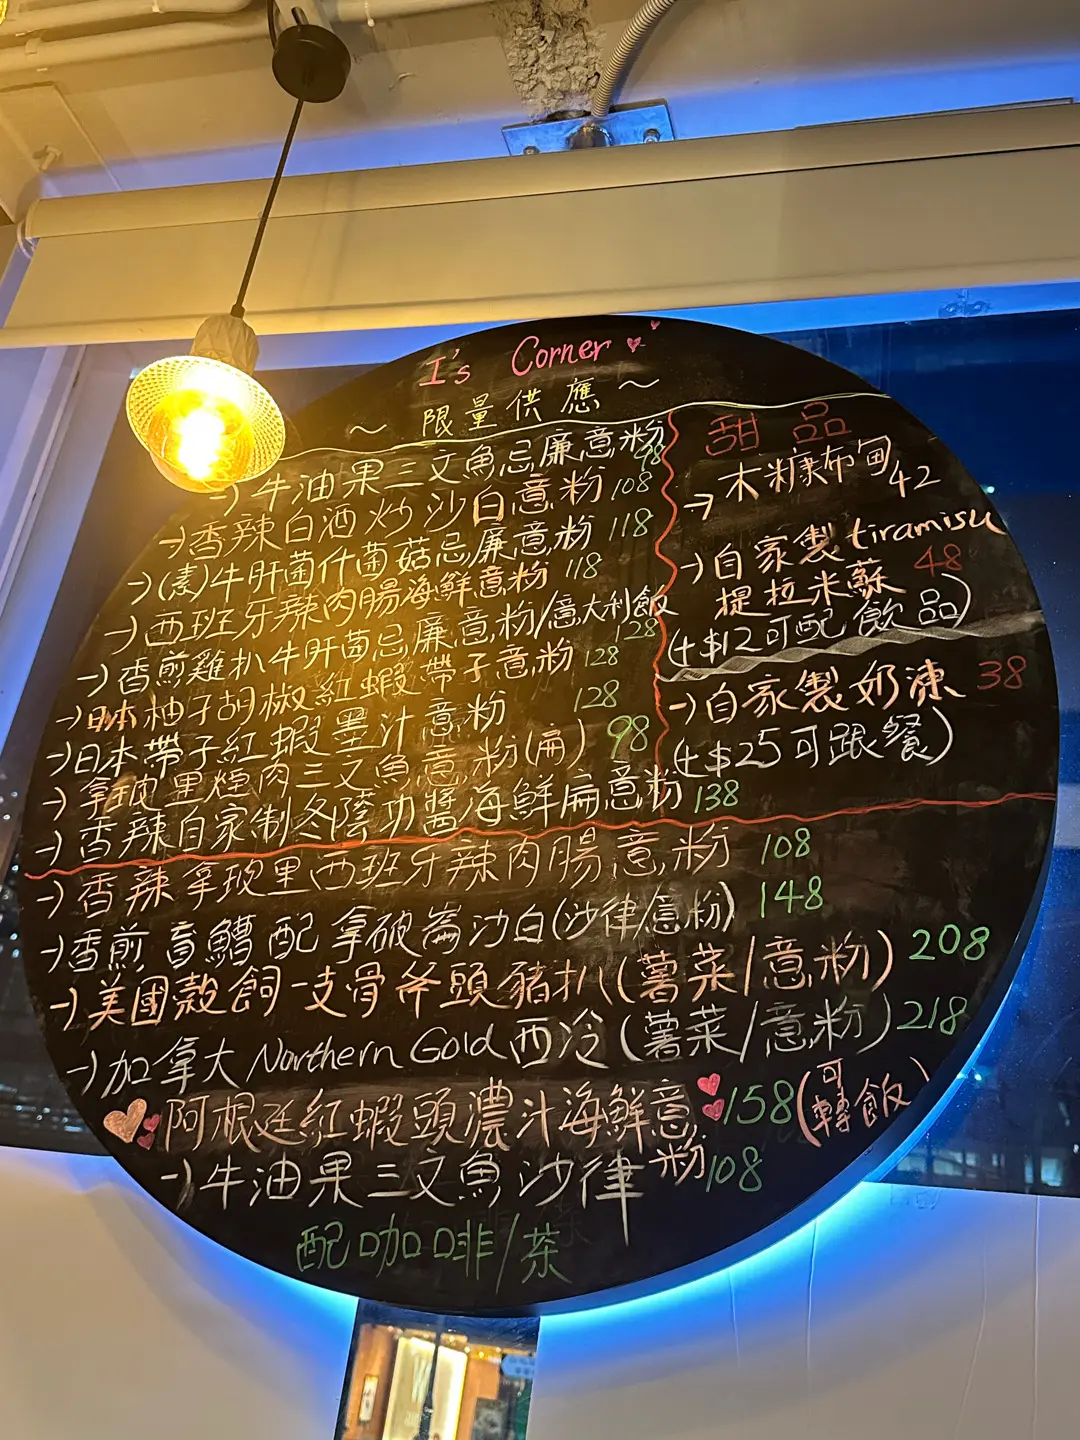 I's Corner
~ 限量供應 ~
→ 牛油果三文魚忌廉意粉 98
→ 香辣白酒炒沙白意粉 108
→ (素)牛肝菌什菌菇忌廉意粉 118
→ 西班牙辣肉腸海鮮意粉 118
→ 香煎雞扒牛肝菌忌廉意粉/意大利飯 128
→ 日本柚子胡椒紅蝦帶子意粉 128
→ 日本帶子紅蝦墨汁意粉 128
→ 拿玻里煙肉三文魚意粉(扁) 98
→ 香辣自家制冬蔭功醬海鮮扁意粉 138
甜品
→ 木糠布甸 42
→ 自家製 tiramisu
提拉米蘇 48
(+$12可配飲品)
→ 自家製奶凍 38
(+$25可跟餐)
→ 香辣拿玻里西班牙辣肉腸意粉 108
→ 香煎盲鰽配拿破崙沙白(沙律/意粉) 148
→ 美國穀飼一支骨斧頭豬扒(薯菜/意粉) 208
→ 加拿大 Northern Gold 西冷(薯菜/意粉) 218
阿根廷紅蝦頭濃汁海鮮意粉 158 (可轉飯)
→ 牛油果三文魚沙律 108
配咖啡/茶